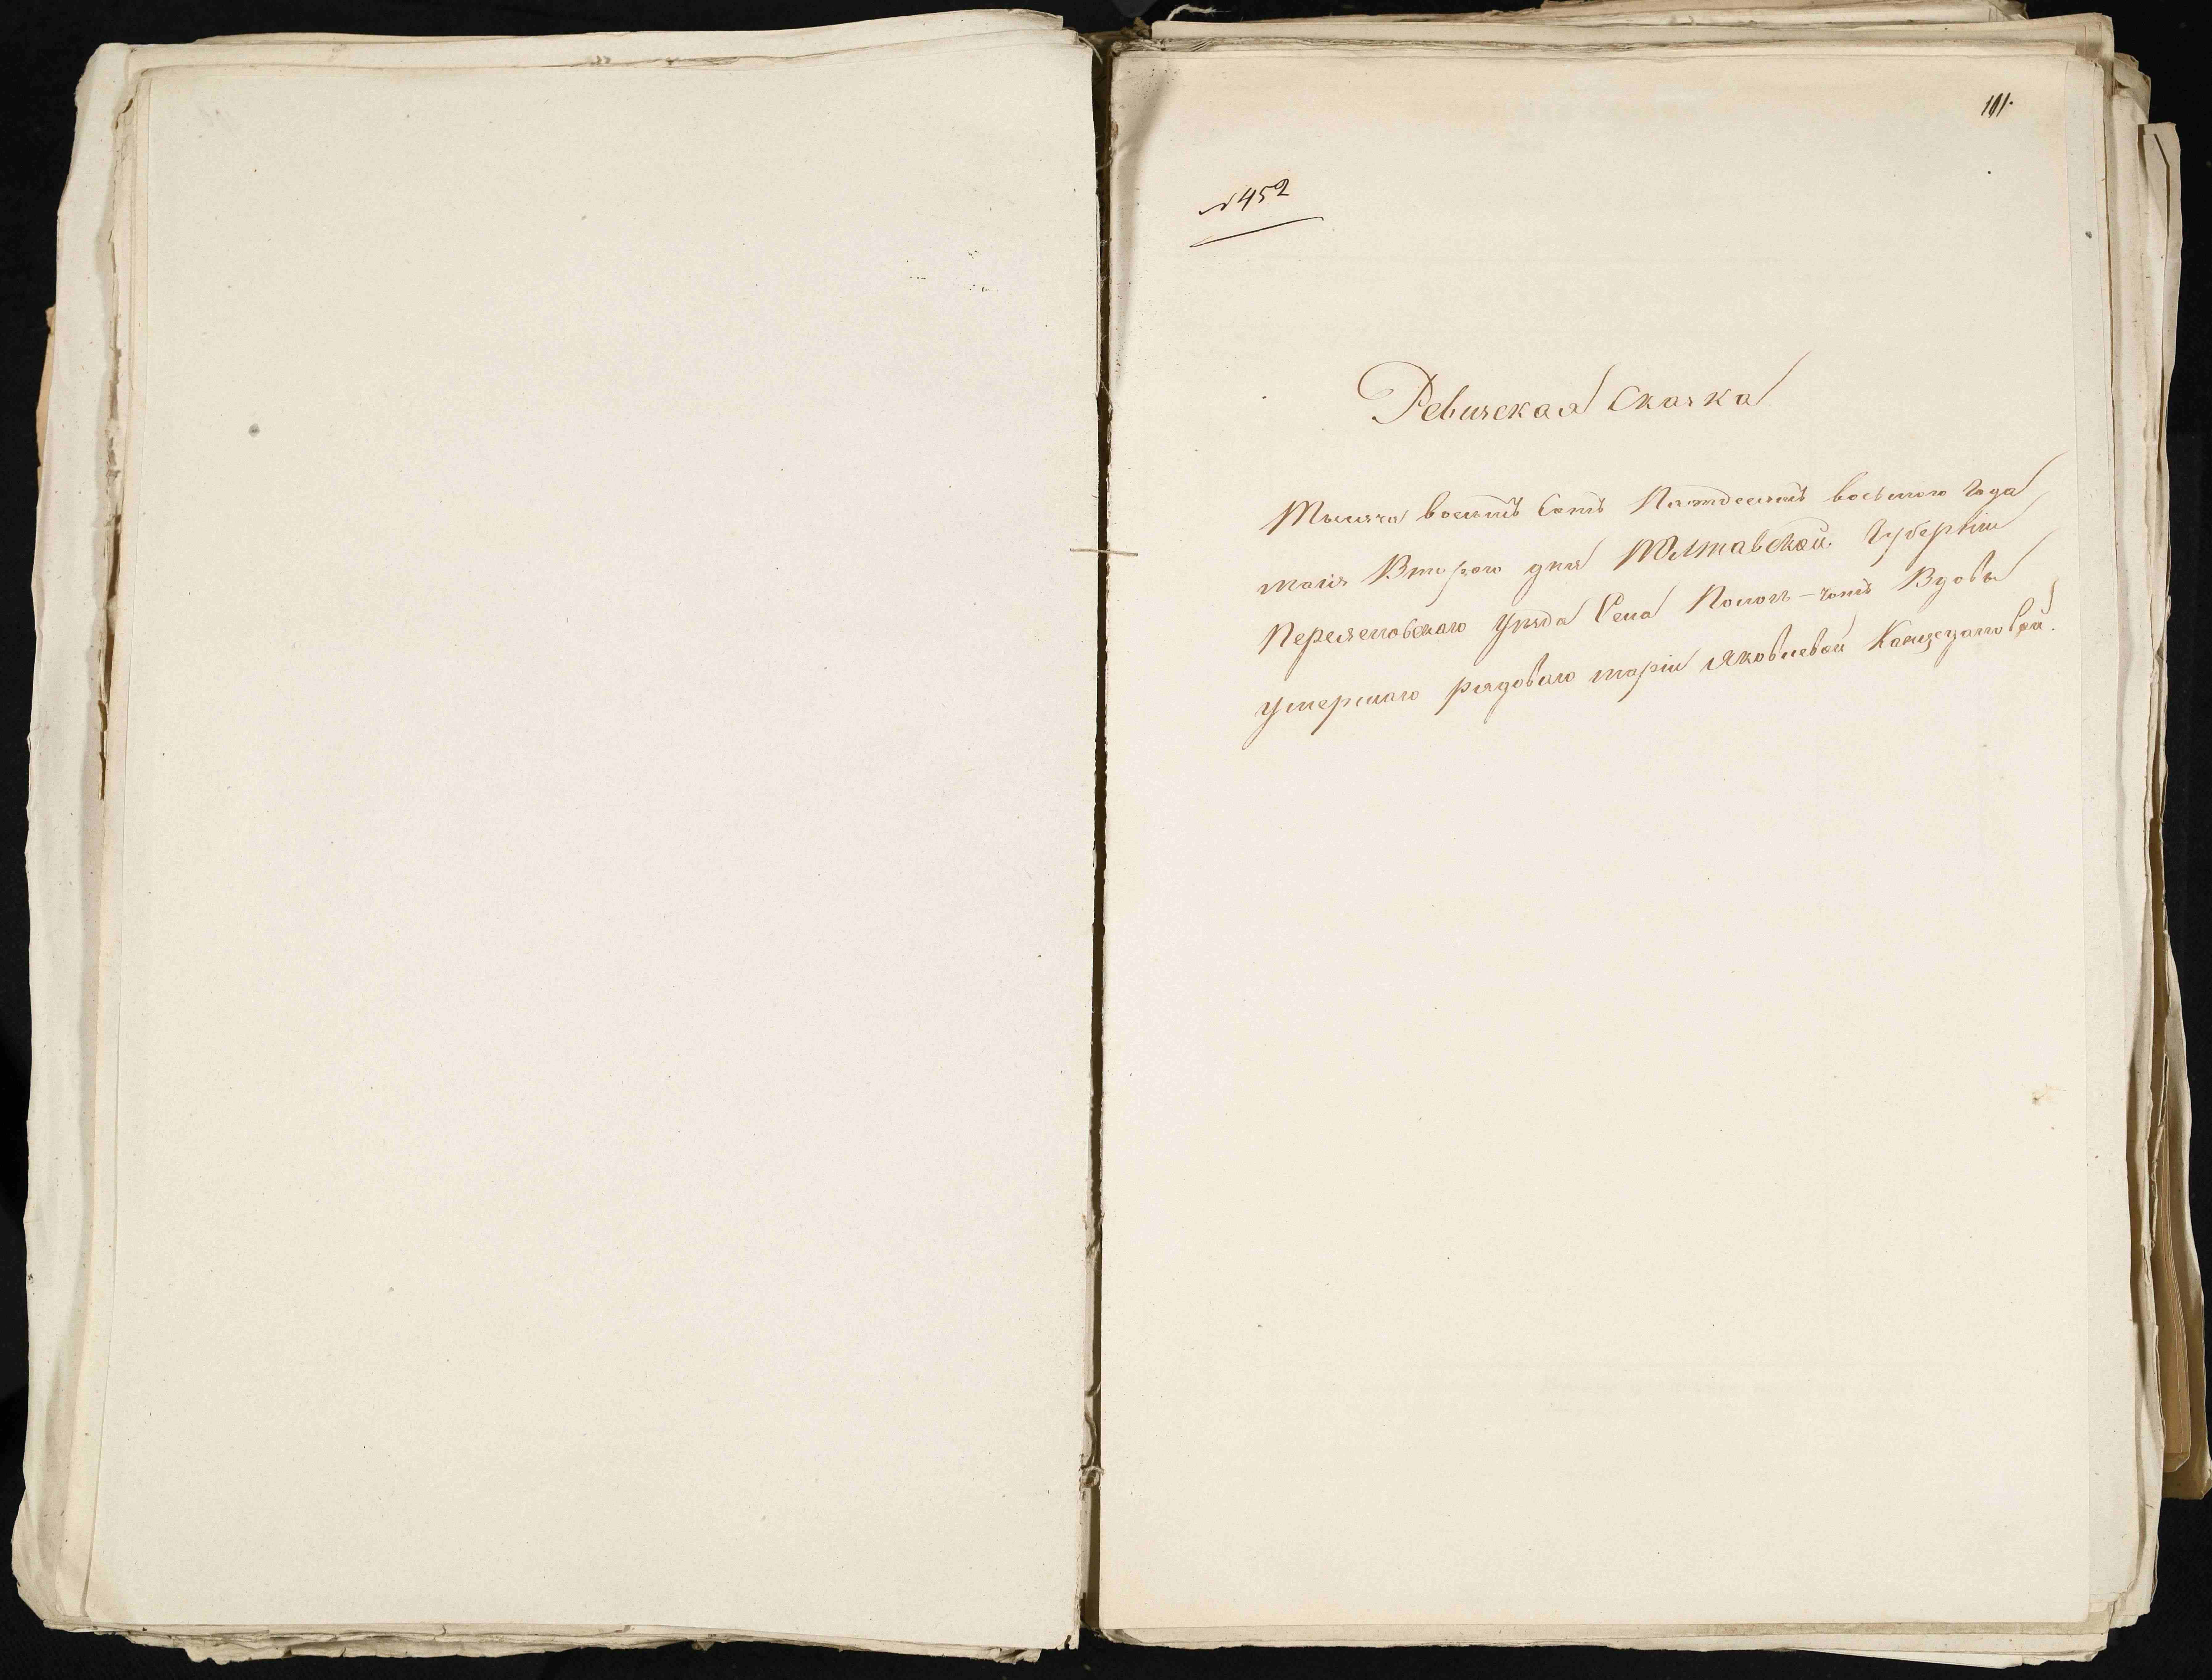 101.
№ 452
Ревизская Сказка
Тысяча восемь Сотъ Пятдесятъ восьмого Года
маія Второго дня Полтавской Губерніи
Переяславскаго Уезда Села Помокъ Вдовы
умершаго рядоваго маріи Яковлевой